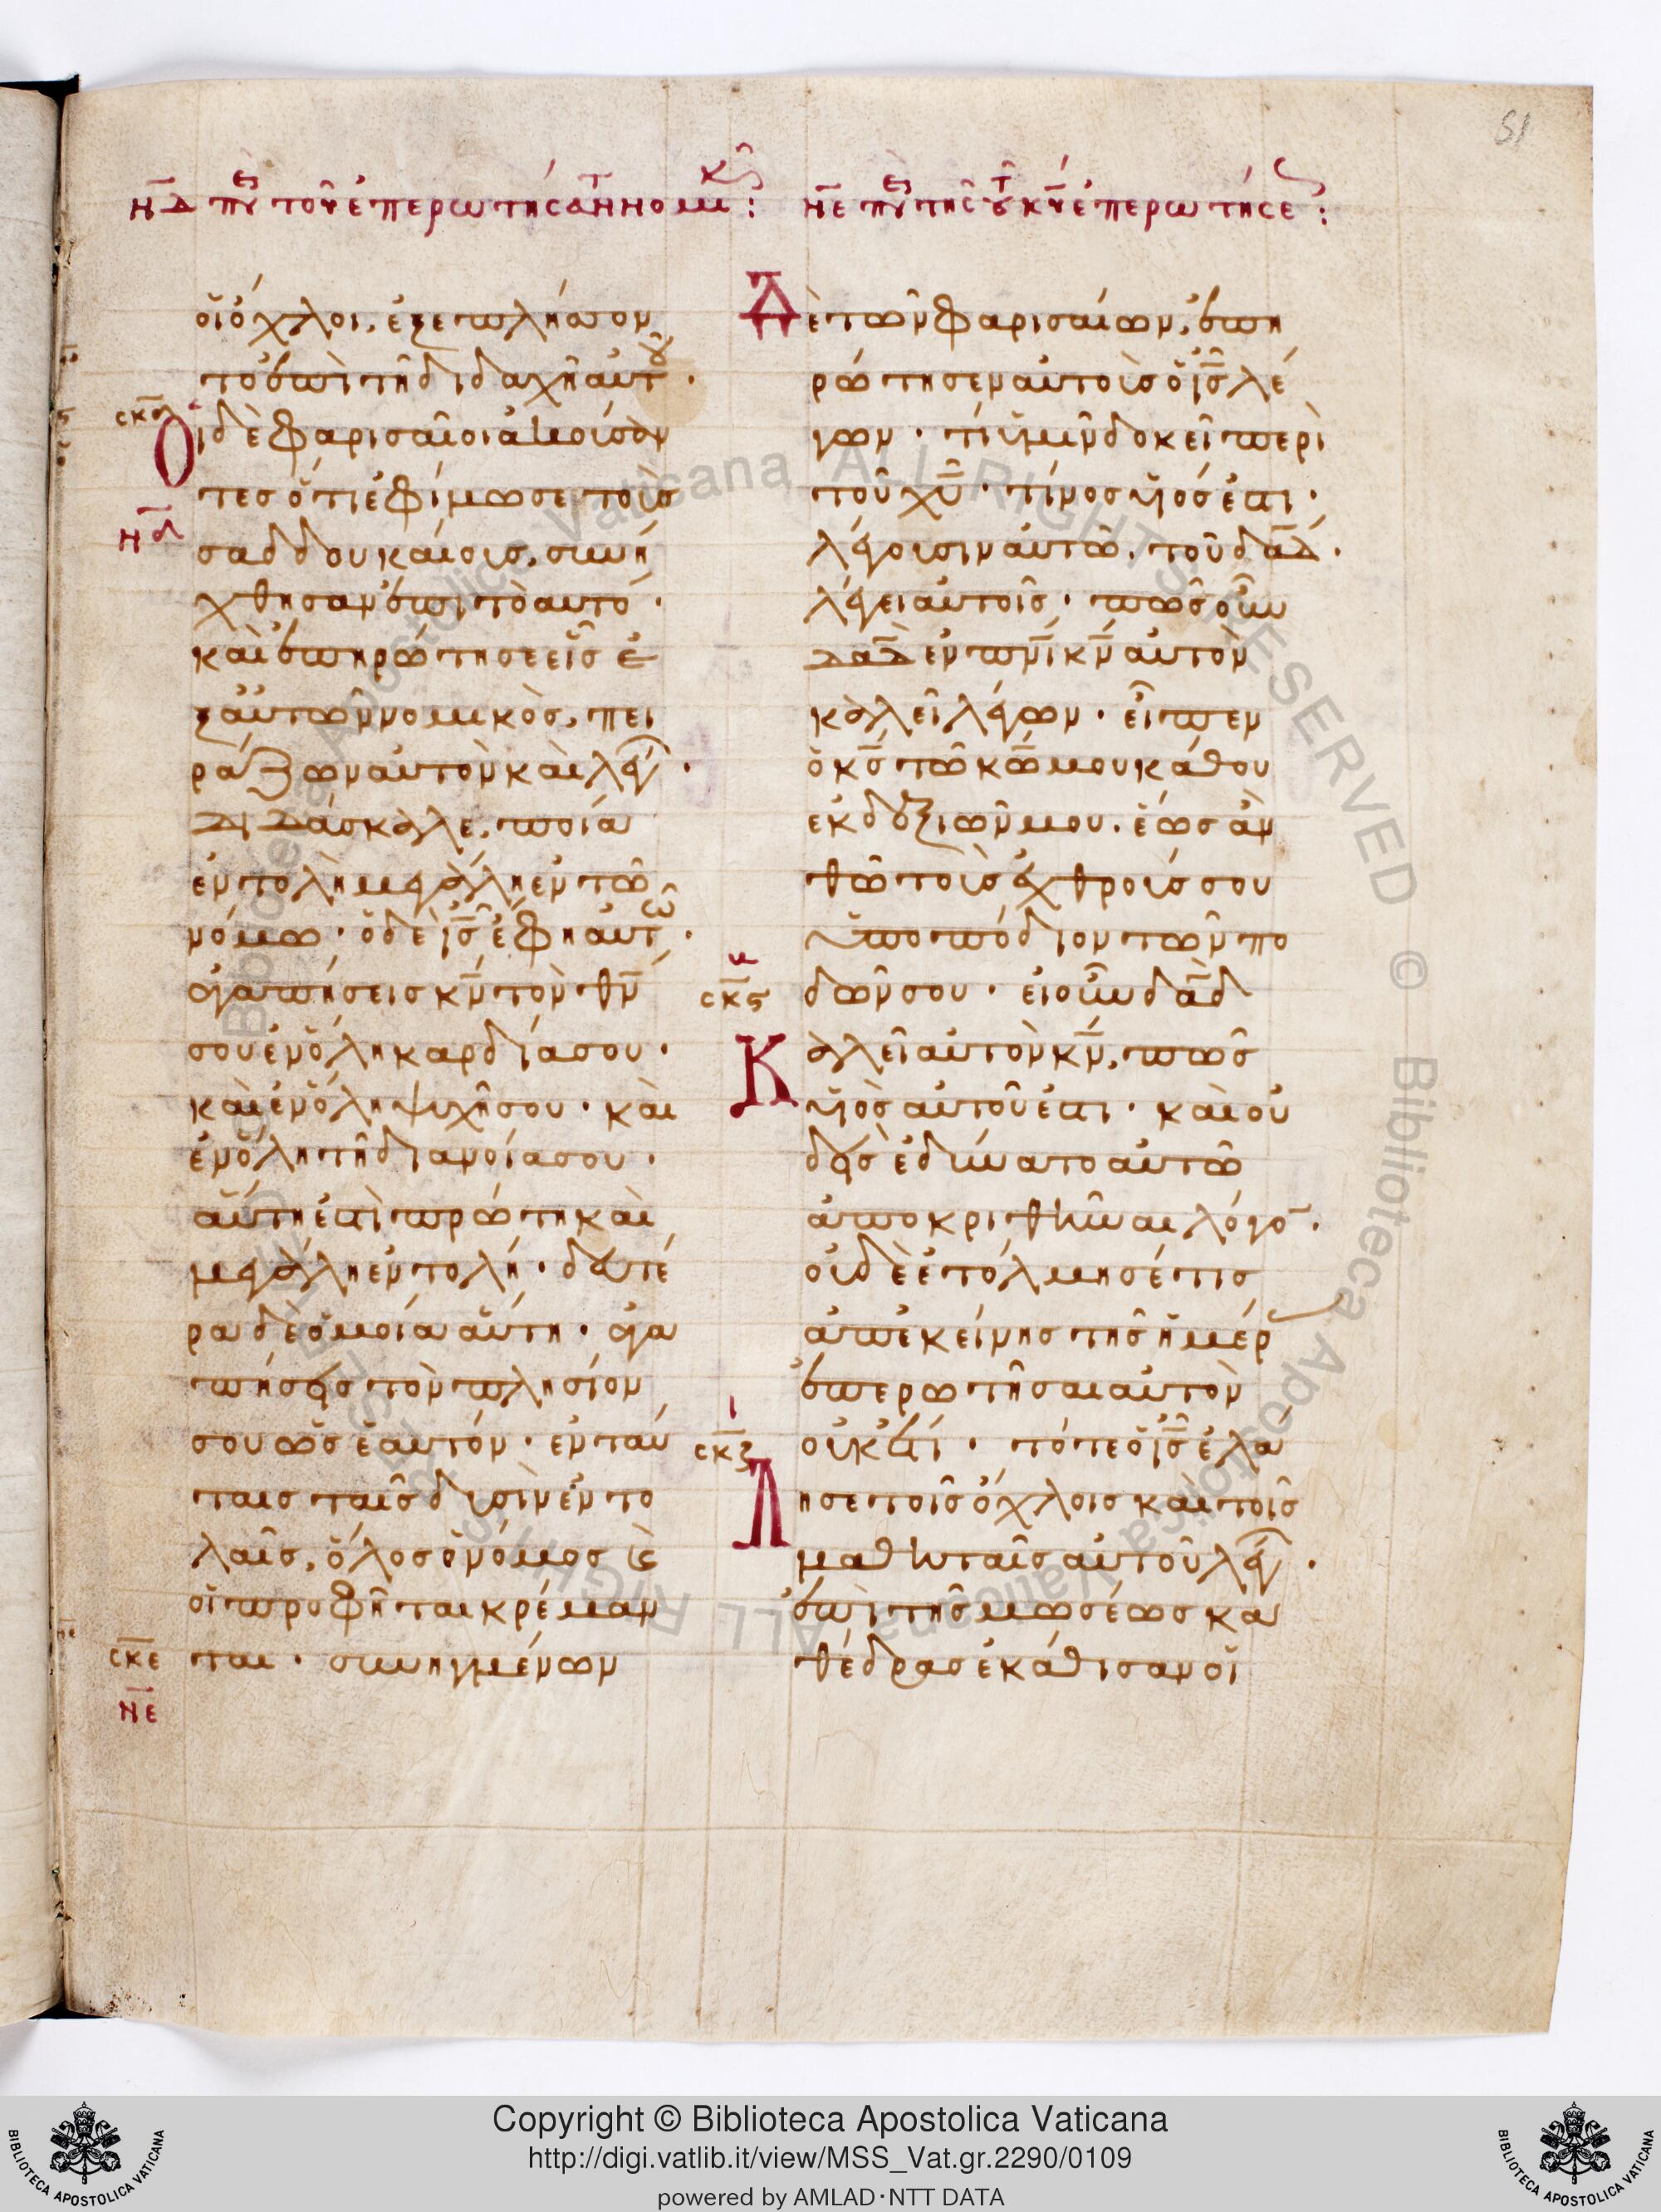 51
ΝΔ πν τοῦ ἐπερωτήσαντ νομικ :
ΝΕ πν τῆς τοῦ κυ ἐπερωτήσε :
οἱ ὄχλοι, ἐξεπλήσσον
το ἐπὶ τῆ διδαχῆ αὐτοῦ.
σκδ
Οἱ δὲ φαρισαῖοι ἀκούσαν
τες ὅτι ἐφίμωσε τοὺς
νδ
σαδδουκαίους, συνή
χθησαν ἐπι τὸ αυτό.
καὶ ἐπηρώτησεν εἷς ἐ
ξ αὐτῶν νομικὸς, πει
ράζων αὐτὸν καὶ λέγ.
διδάσκαλε, ποία
ἐντολὴ μεγάλη ἐν τῶ
νόμω. ὁ δὲ ις ἔφη αὐτῶ.
ἀγαπήσεις κν τὸν θν
σου ἐν ὅλη καρδία σου.
καὶ ἐν ὅλη ψυχῆ σου. καὶ
ἐν ὅλη τῆ διανοία σου.
αὕτη ἐστὶ πρώτη καὶ
μεγάλη ἐντολή. δευτέ
ρα δὲ ὁμοία αὕτη. ἀγα
πήσεις τὸν πλησίον
σου ὡς ἑαυτόν. ἐν ταύ
ταις ταῖς δυσὶν ἐντο
λαῖς, ὅλος ὁ νόμος κὲ
οἱ προφῆται κρέμαν
σκε
ται. συνηγμένων
νε
Δὲ τῶν φαρισαίων, ἐπη
ρώτησεν αὐτοὺς ὁ ις λέ
γων. τί ὑμῖν δοκεῖ περὶ
τοῦ χυ. τίνος υἱός ἐστι.
λέγουσιν αὐτῶ. τοῦ δαδ.
λέγει αὐτοῖς. πῶς οὖν
δαδ ἐν πνι κν αὐτὸν
καλεῖ λέγων. εἶπεν
ὁ κς τῶ κω μου κάθου
ἐκ δεξιῶν μου. ἕως ἂν
θῶ τοὺς ἐχθρούς σου
ὑποπόδιον τῶν πο
σκς
δῶν σου. εἰ οὖν δαδ
Καλεῖ αὐτὸν κν, πῶς
υἱὸς αὐτοῦ ἐστι. καὶ οὐ
δεὶς ἐδύνατο αὐτῶ
ἀποκριθῆναι λόγο.
οὐδὲ ἐτόλμησέ τις
ἀπ ἐκείνης τῆς ἡμέρ
ἐπερωτῆσαι αὐτὸν
σκζ
οὐκέτι. τότε ὁ ις ἐλά
Λησε τοῖς ὄχλοις καὶ τοῖς
μαθηταῖς αὐτοῦ λέγ.
ἐπὶ τῆς μωσέως κα
θέδρας ἐκάθισαν οἱ
Copyright © Biblioteca Apostolica Vaticana
http://digi.vatlib.it/view/MSS_Vat.gr.2290/0109
powered by AMLAD·NTT DATA
BIBLIOTECA APOSTOLICA VATICANA
BIBLIOTECA APOSTOLICA VATICANA